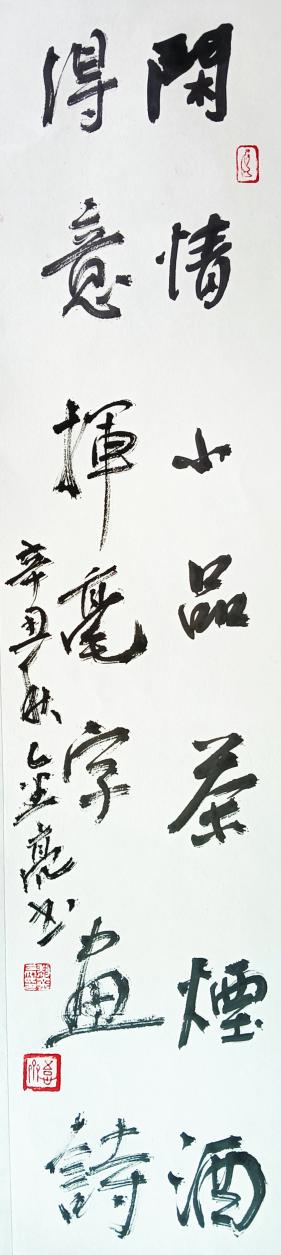 閑情小品茶煙酒
得意揮毫字畫詩
辛丑秋金亮书